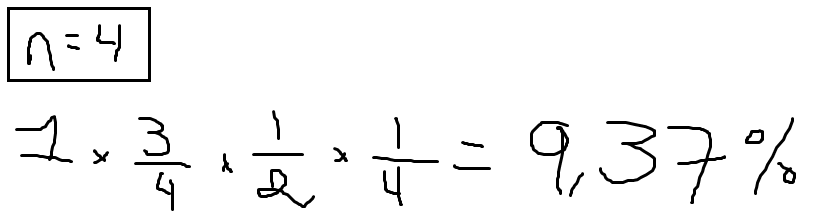 n=4
1 × 3/4 × 1/2 × 1/4 = 9,37%